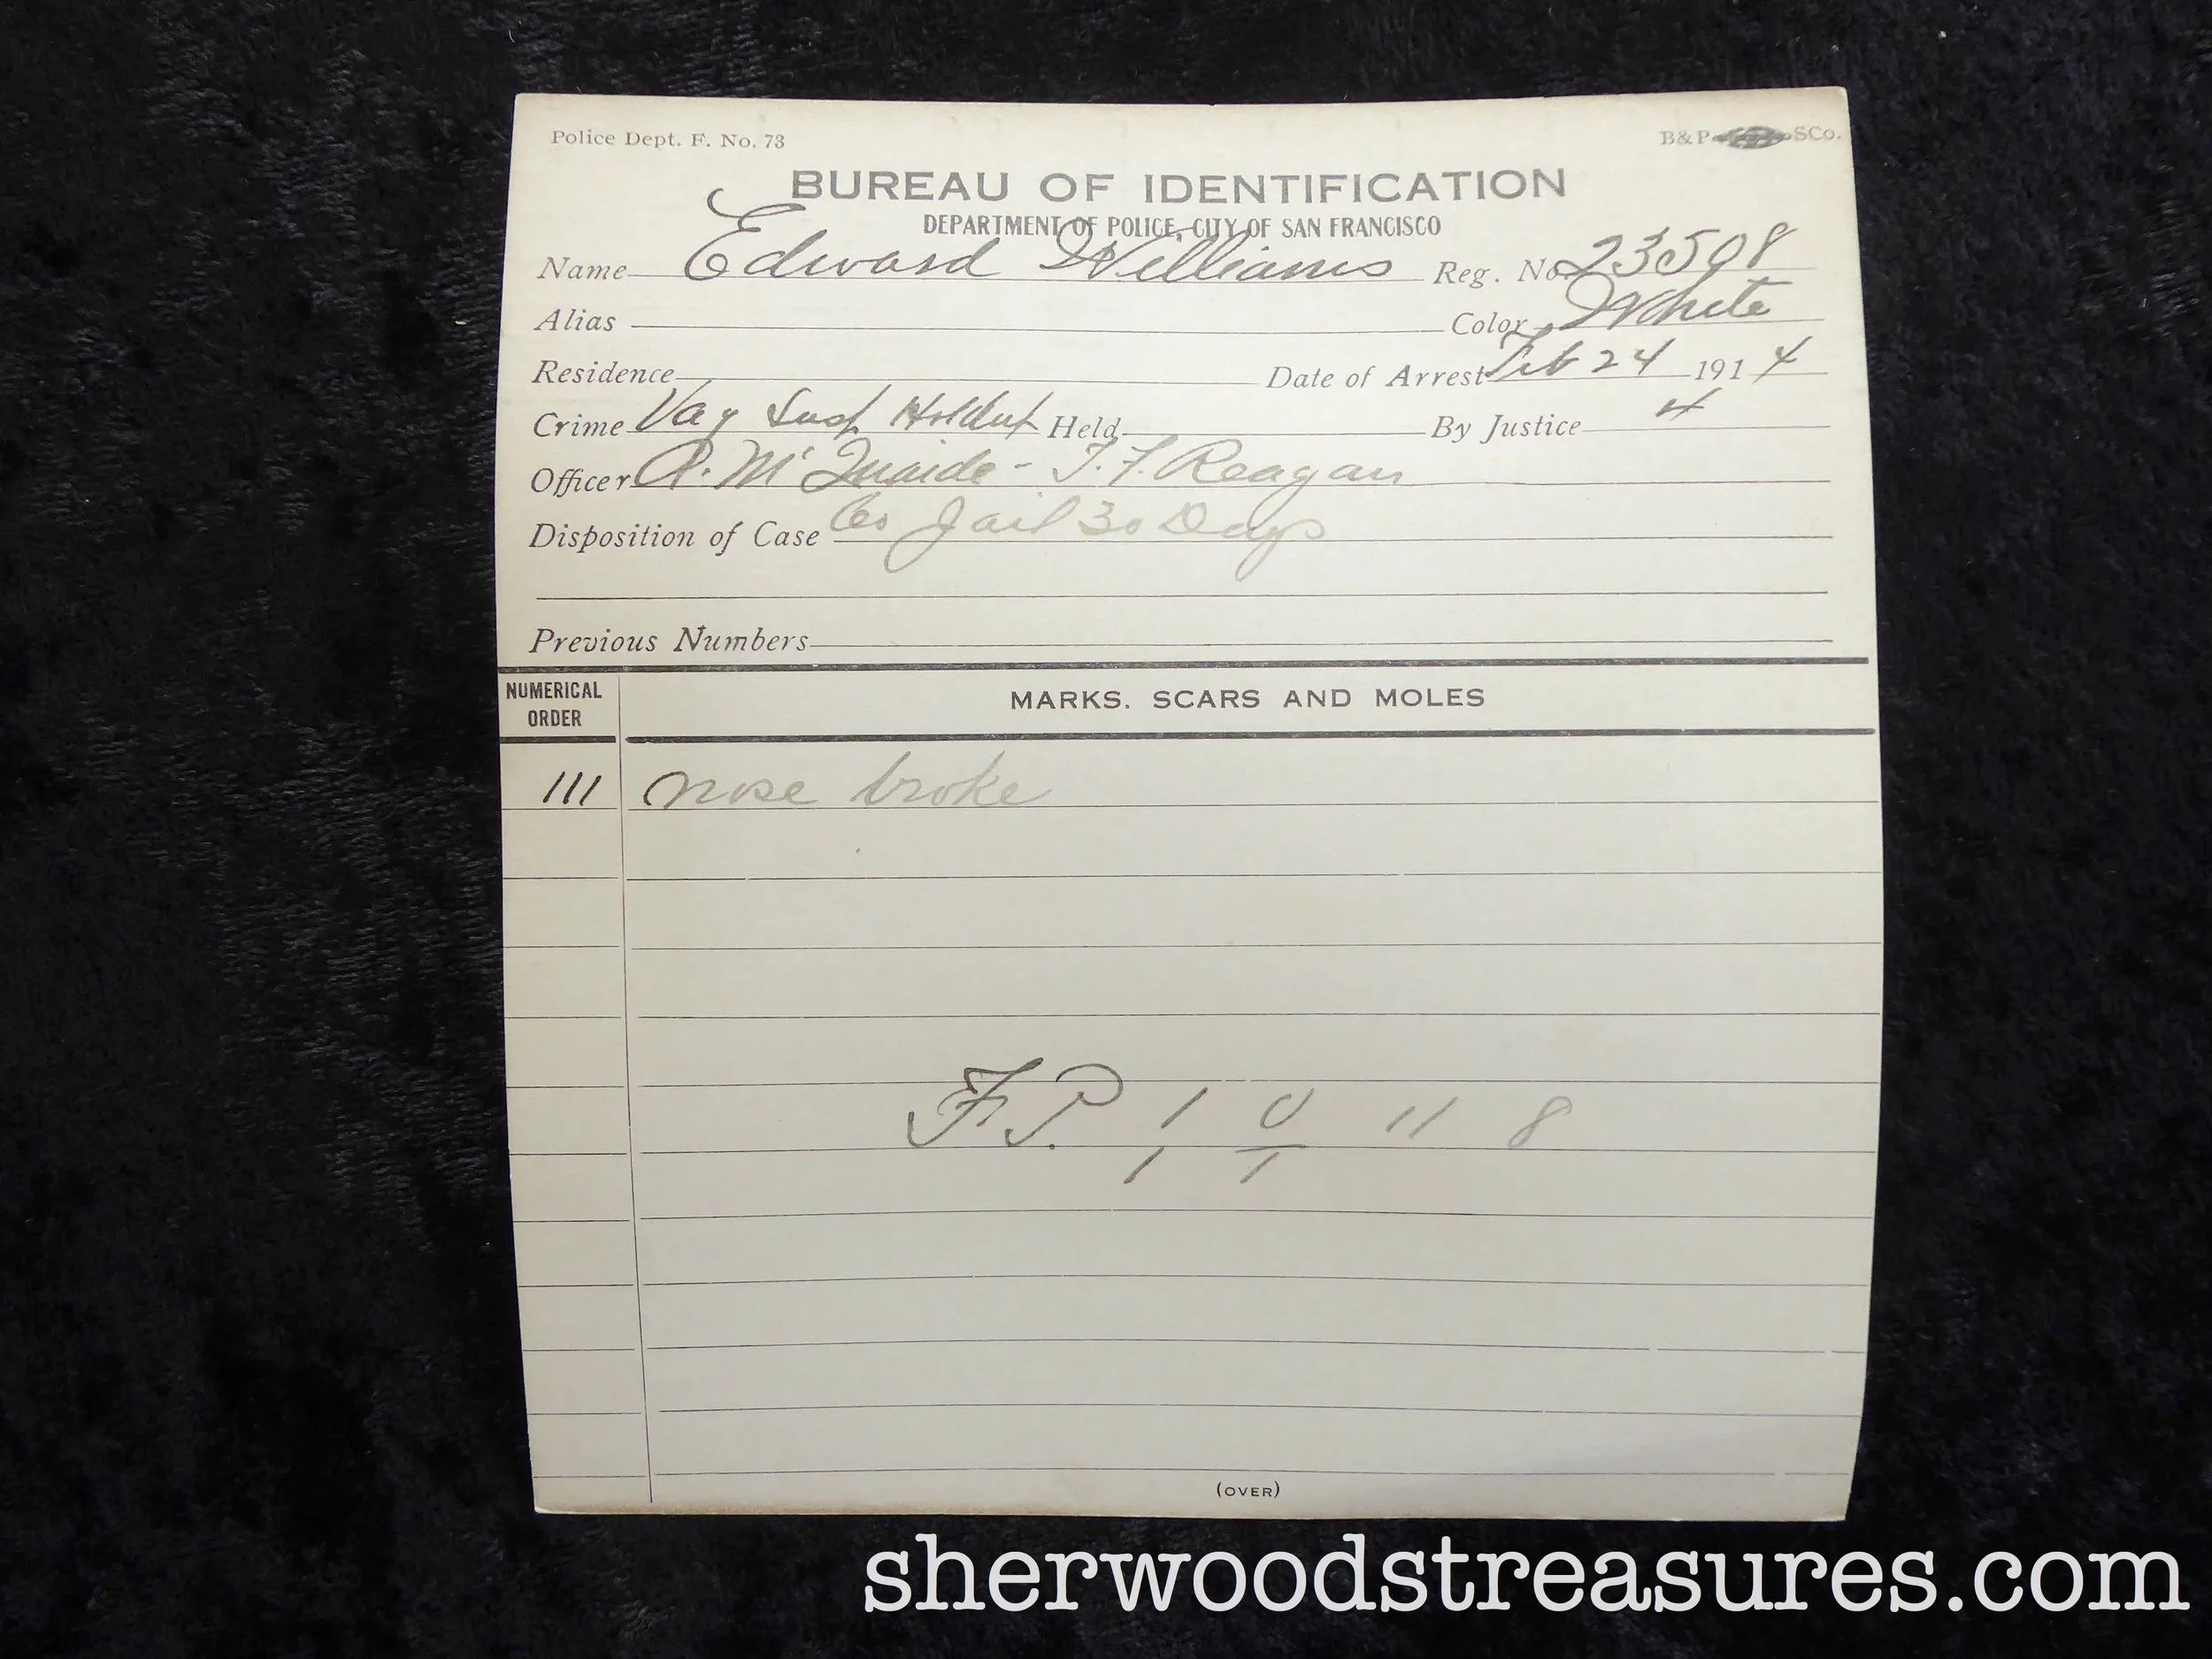 Police Dept. F. No. 73 B&P SCo.
BUREAU OF IDENTIFICATION
DEPARTMENT OF POLICE, CITY OF SAN FRANCISCO
Name Edward Williams Reg. No. 23508
Alias Color White
Residence Date of Arrest Feb 24 1914
Crime Vag Susp Holdup Held By Justice 4
Officer R. McQuaide - T. F. Reagan
Disposition of Case Co Jail 30 Days
Previous Numbers
NUMERICAL ORDER MARKS. SCARS AND MOLES
III nose broke
F.P. 1 U 11 8
1 1
(OVER)
sherwoodstreasures.com